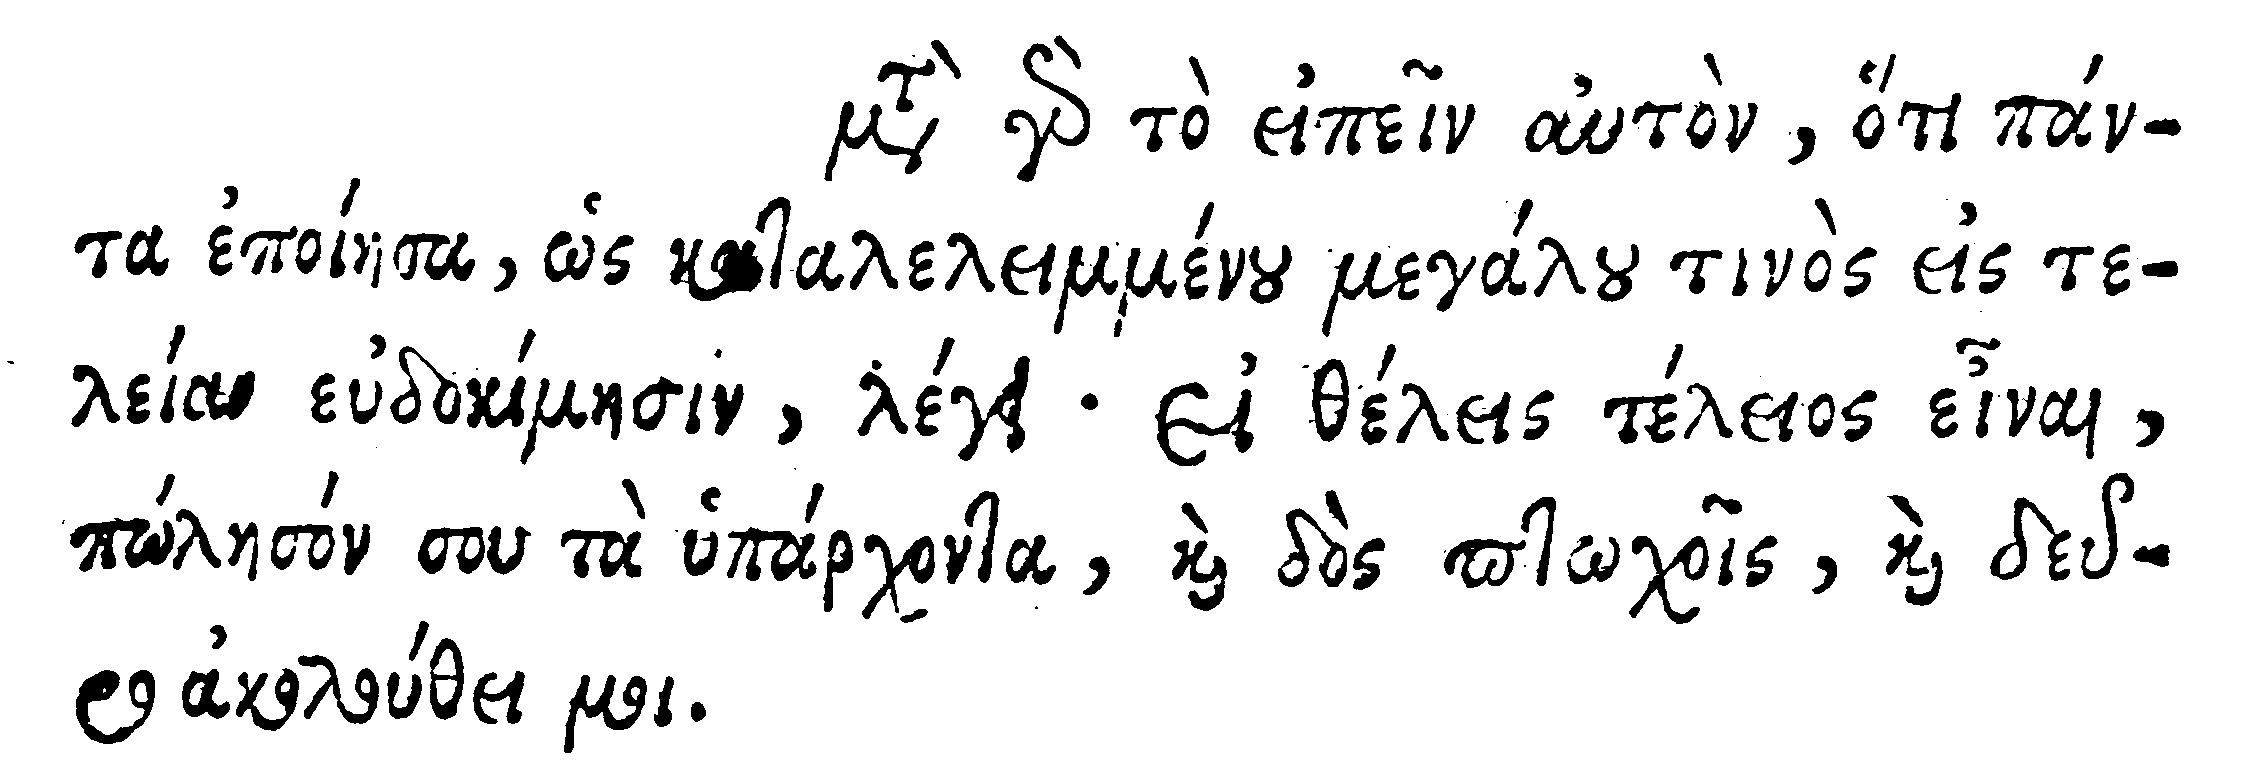 μετὰ γὰρ τὸ εἰπεῖν αὐτὸν, ὅτι πάν-
τα ἐποίησα, ὡς καταλελειμμένου μεγάλου τινὸς εἰς τε-
λείαν εὐδοκίμησιν, λέγει · Εἰ θέλεις τέλειος εἶναι,
πώλησόν σου τὰ ὑπάρχοντα, καὶ δὸς πτωχοῖς, καὶ δεῦ-
ρο ἀκολούθει μοι.